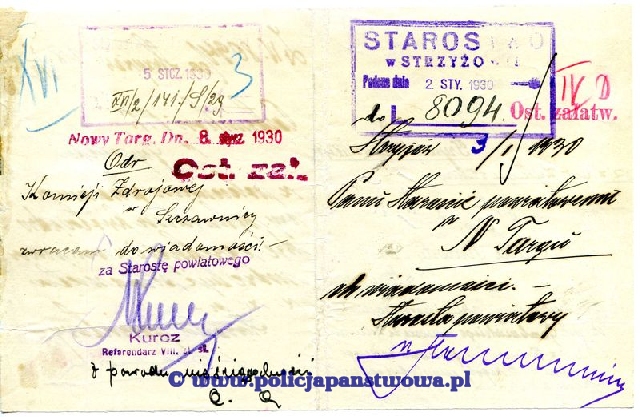 XVI
5 STCZ. 1930
XVI/2/141/S/29
3
Nowy Targ, Dn. 8. stycz 1930
Ost. zał.
Odr
Komisji Zdrojowej
w
Szczawnicy
zwracam do wiadomości. —
za Starostę powiatowego
Kurcz
Referendarz VIII. st. sł.
z powodu
STAROSTWO
W STRZYŻOWIE
Podane dnia 2 STY. 1930
do L. 8094
IV D
Ost. załatw.
Strzyżów 3/I 1930
Panu Staroście powiatowemu
w
N Targu
do wiadomości. —
Starosta powiatowy
© www.policjapanstwowa.pl